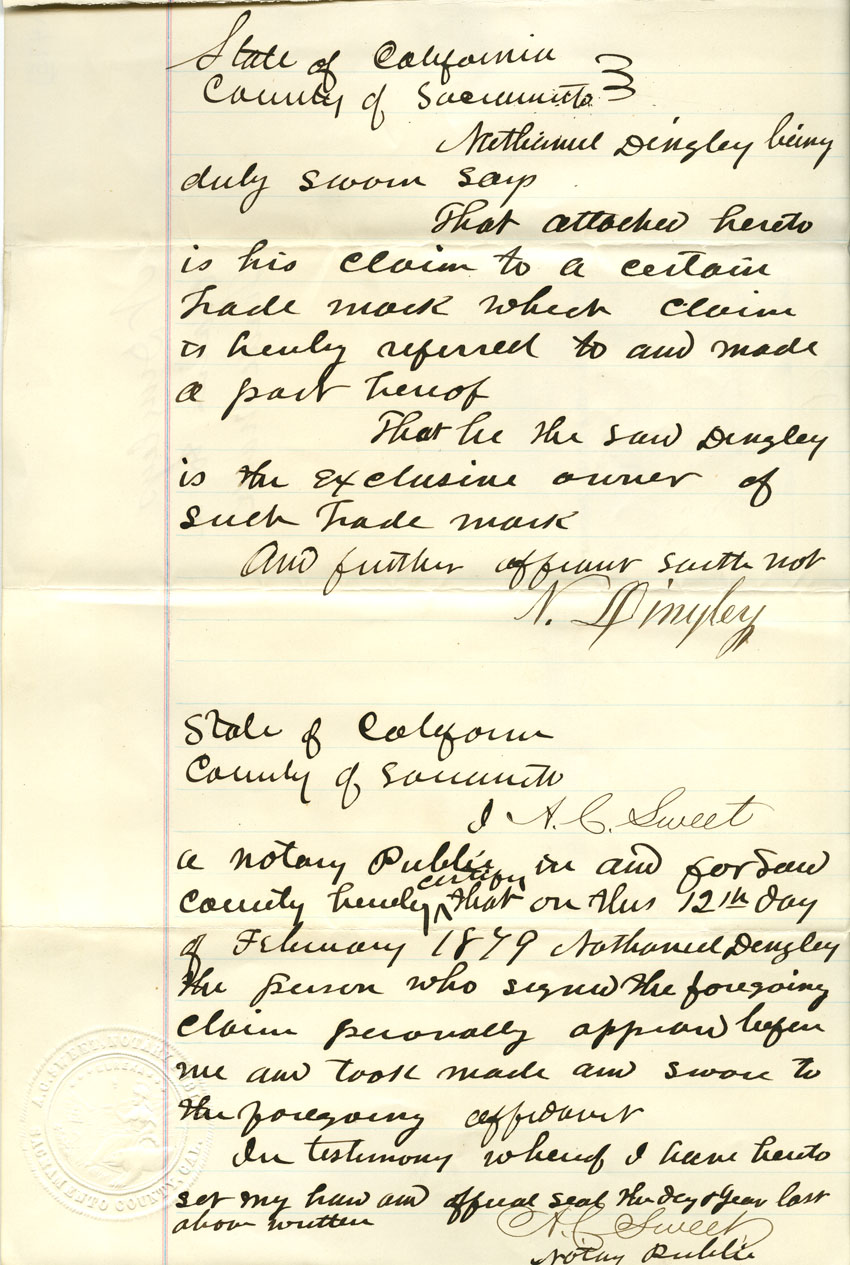 State of California
County of Sacramento
Nathaniel Dingley being
duly sworn says
That attached hereto
is his claim to a certain
Trade mark which claim
is hereby referred to and made
a part hereof
That he the said Dingley
is the exclusive owner of
such Trade mark
And further affiant saith not
N. Dingley
State of California
County of Sacramento
I A. C. Sweet
a notary Public in and for said
county hereby certify that on this 12th day
of February 1879 Nathaniel Dingley
the person who signed the foregoing
claim personally appeared before
me and took made and swore to
the foregoing affidavit
In testimony whereof I have hereto
set my hand and official seal the day & year last
above written
A. C. Sweet
Notary Public
A. C. SWEET, NOTARY PUB
SACRAMENTO COUNTY, CAL.